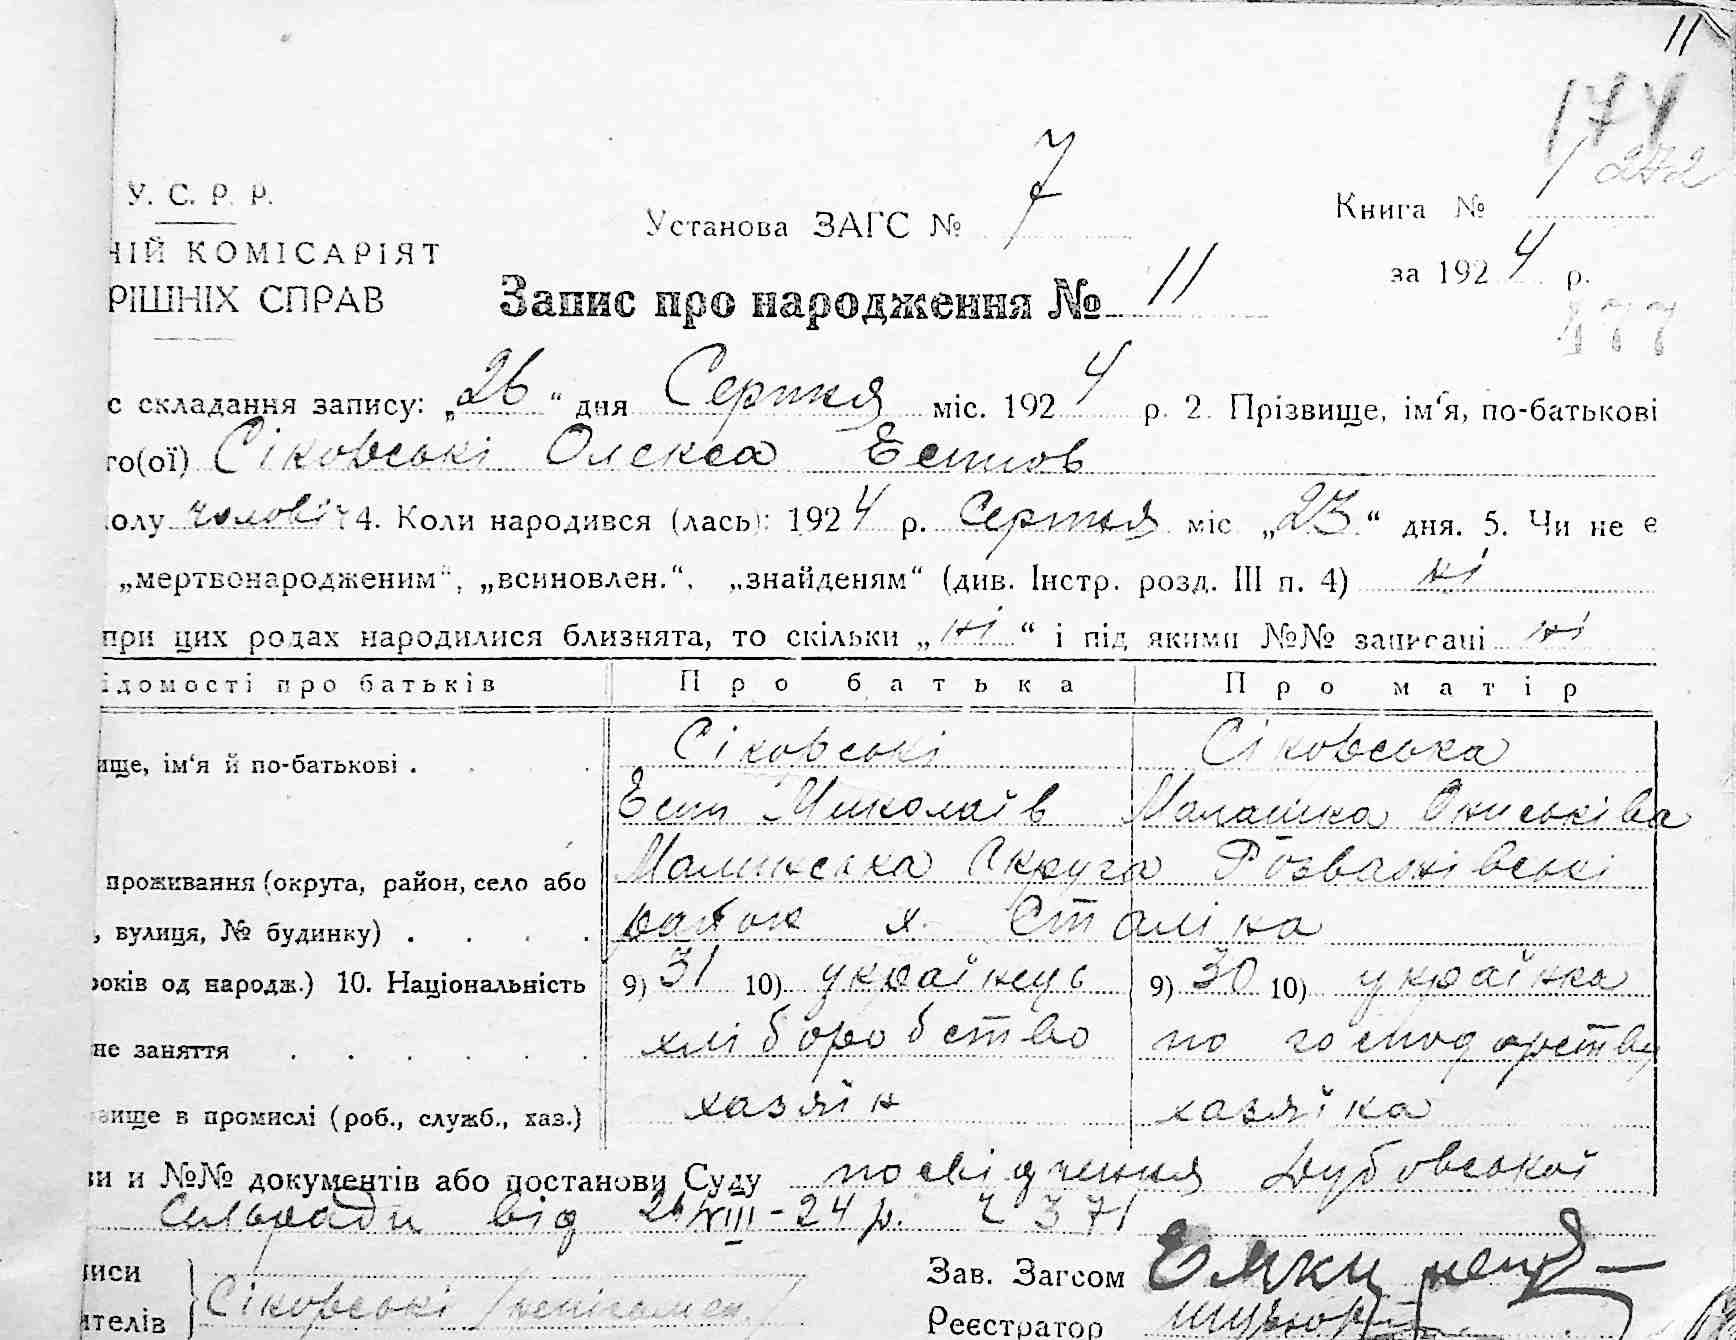 11
174
272
У. С. Р. Р.
Установа ЗАГС № 7
Книга №
НІЙ КОМІСАРІЯТ
за 1924 р.
РІШНІХ СПРАВ
Запис про народження № 11
477
с складання запису: „26“ дня Серпня міс. 1924 р. 2. Прізвище, ім‘я, по-батькові
го(ої) Сіковські Олекса Естпов
олу чоловіч 4. Коли народився (лась): 1924 р. Серпня міс „23“ дня. 5. Чи не є
„мертвонародженим“, „всиновлен.“, „знайденям“ (див. Інстр. розд. III п. 4) ні
при цих родах народилися близнята, то скільки „ні“ і під якими №№ записані ні
ідомості про батьків Про батька Про матір
Сіковські Сіковська
ище, ім‘я й по-батькові .
Миколаїв Малашка Ониськіва
проживання (округа, район, село або Малинська Округа Розважівські
, вулиця, № будинку) . . . . район х. Сталіка
років од народж.) 10. Національність 9) 31 10) українець 9) 30 10) українка
не заняття . . . . . . хліборобство по господарству
вище в промислі (роб., служб., хаз.) хазяїн хазяїка
ви и №№ документів або постанови Суду посвідчення Дубовської
Сельради від 26/VIII-24 р. ч 371
иси
Зав. Загсом
ителів Сіковські
Реєстратор